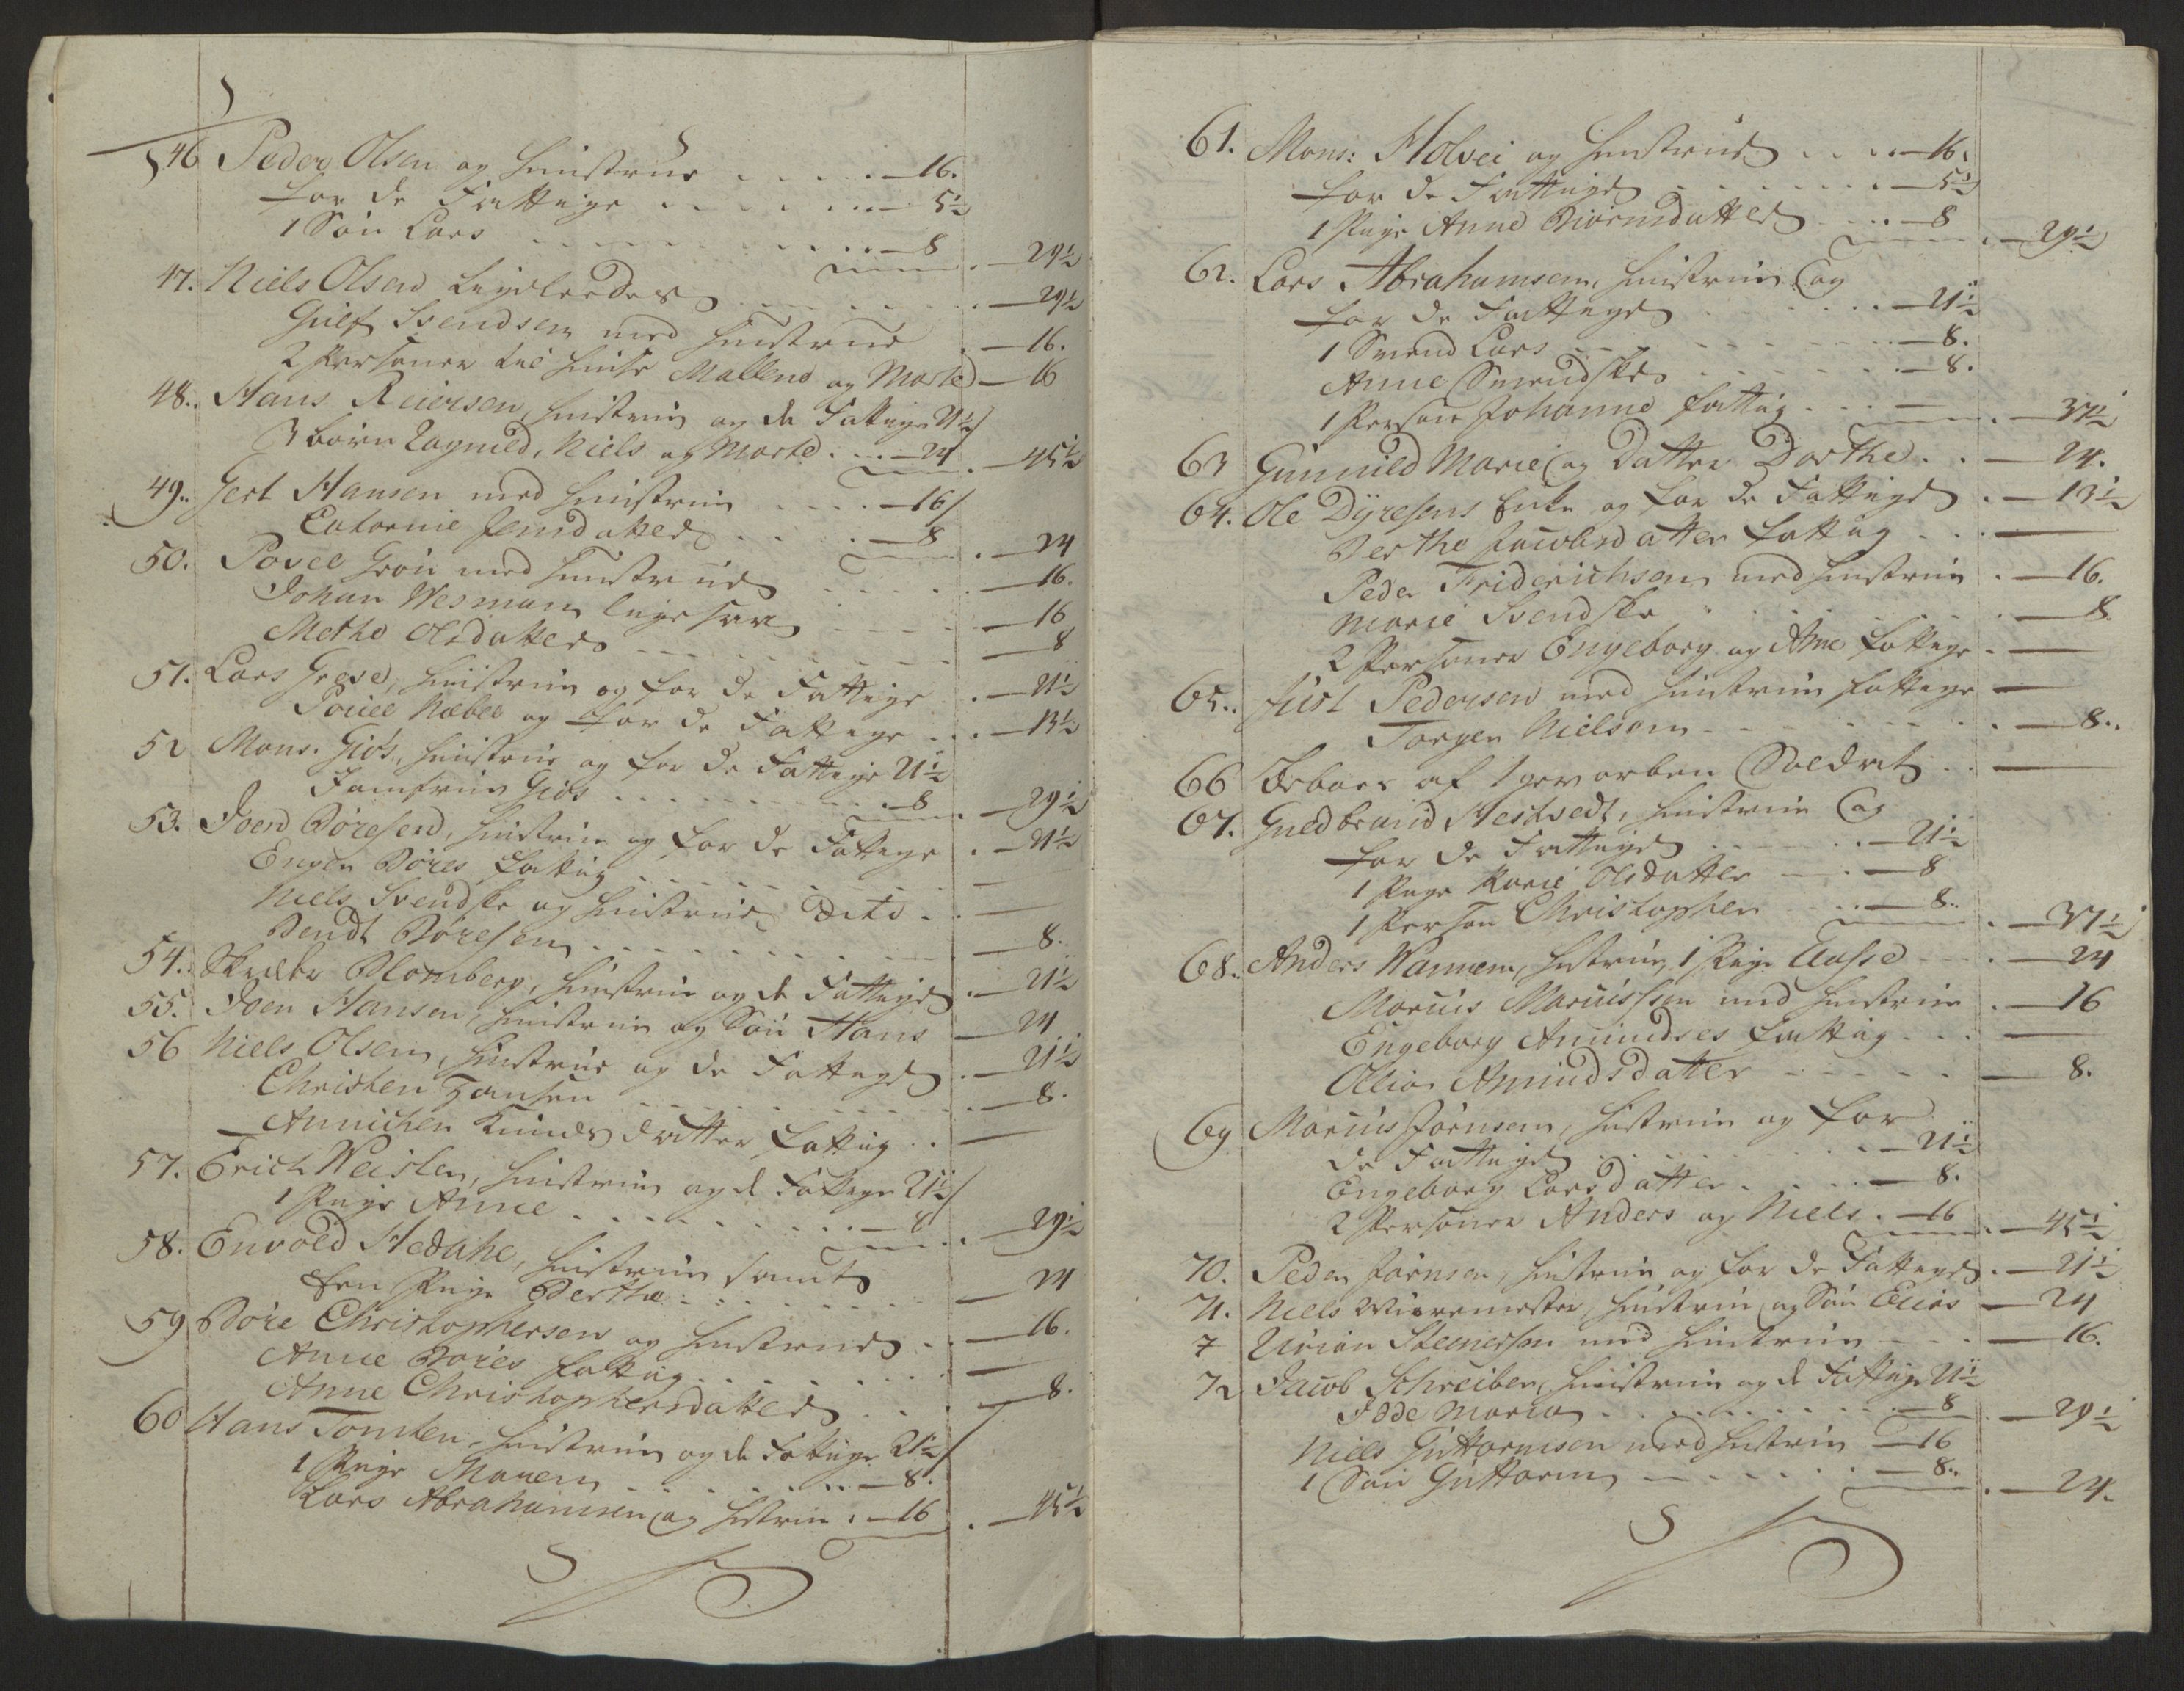 46 Peder Olsen og Hustrue . . . . . —16.
for de Fattige . . . . . — 5½
1 Søn Lars . . . . . . —8 . —29½
47. Niels Olsen . . . . . —29½
Gulf Svendsen med Hustrue . —16.
2 Personer til Huuse Mallene og Marte — 16
48. Hans Reiersen, Hustrue og de Fattige 21½
3 børn Ragnild, Niels og Marte . . . —24 . —45½
49. Gert Hansen med Hustrue . . . . —16
Catarine Jensdatter . . . —8 . —24
50. Povel Grøn med Hustrue . . . . . —16.
Johan Wesman . . . —16
Methe Olsdatter . . . . . —8
51. Lars Greve, Hustrue og for de Fattige . —21½
Povel Næbel og for de Fattige . . . —13½
52 Mons. Giøs, Hustrue og for de Fattige 21½
Jomfrue Giøs . . . . . . —8 . —29½
53. Joen Børesen, Hustrue og for de Fattige . —21½
Engen Børes fattig . . . . . —
Niels Svendske og Hustrue Dito . . —
Bendt Børesen . . . . . —8.
54. Skræder Blomberg, Hustrue og de Fattige . —21½
55. Joen Hansen, Hustrue og Søn Hans — 24
56 Niels Olsen, Hustrue og de Fattige . —21½
Christen Hansen . . . . . —8.
Annichen Knudsdatter fattig . . —
57. Erich Weislen, Hustrue og de Fattige 21½
1 Pige Anne . . . . . . —8 . —29½
58. Envold Hedahl, Hustrue samt
Een Pige Berthe . . . . . —24
59 Børe Christophersen og Hustrue . . —16.
Anne Børes fattig . . . . . —
Anne Christophersdatter . . . —8.
60 Hans Tomten, Hustrue og de Fattige 21½
1 Pige Maren . . . . . —8.
Lars Abrahamsen og Hustrue . —16 . —45½
61. Mons: Holvei og Hustrue . . . . —16.
for de Fattige . . . . . —5½
1 Pige Anne Biørnsdatter . . . —8 . —29½
62. Lars Abrahamsen, Hustrue og
for de Fattige . . . . . —21½
1 Svend Lars . . . . . —8.
Anne Svendske . . . . . —8.
1 Person Johanne fattig . . . — . —37½
63 Gunnild Marie og Datter Dorthe . . —24.
64. Ole Dyresens Enke og for de Fattige . —13½
Berthe Jacobsdatter fattig . . . —
Peder Friderichsen med Hustrue . —16.
Marie Svendske . . . . —8.
2 Personer Engeborg og Ane fattige . —
65. Just Pedersen med Hustrue fattige —
Torger Nielsen . . . . . —8.
66 Beboes af 1 gevorben Soldat . . —
67. Guldbrand Hestvedt, Hustrue og
for de Fattige . . . . . —21½
1 Pige Karie Olsdatter — . —8
1 Person Christopher . . . —8. . —37½
68. Anders Wannem, Hustrue, 1 Pige Aasse . . —24
Marius Mariussen med Hustrue . —16
Engeborg Amundses fattig . . . —
Ollia Amundsdatter . . . . —8.
69 Marius Jørnsen, Hustrue og for
de Fattige . . . . . —21½
Engeborg Larsdatter . . . —8.
2 Personer Anders og Niels . —16 . —45½
70. Peder Jørnsen, Hustrue og for de Fattige . —21½
71. Niels Muurmester, Hustrue og Søn Elias —24
7 Urian Steenersen med Hustrue . . . —16.
72 Jacob Schreiber, Hustrue og de Fattige 21½
Idde Maria . . . . . —8 . —29½
Niels Guttormsen med Hustrue —16
1 Søn Guttorm . . . . . —8. . —24.